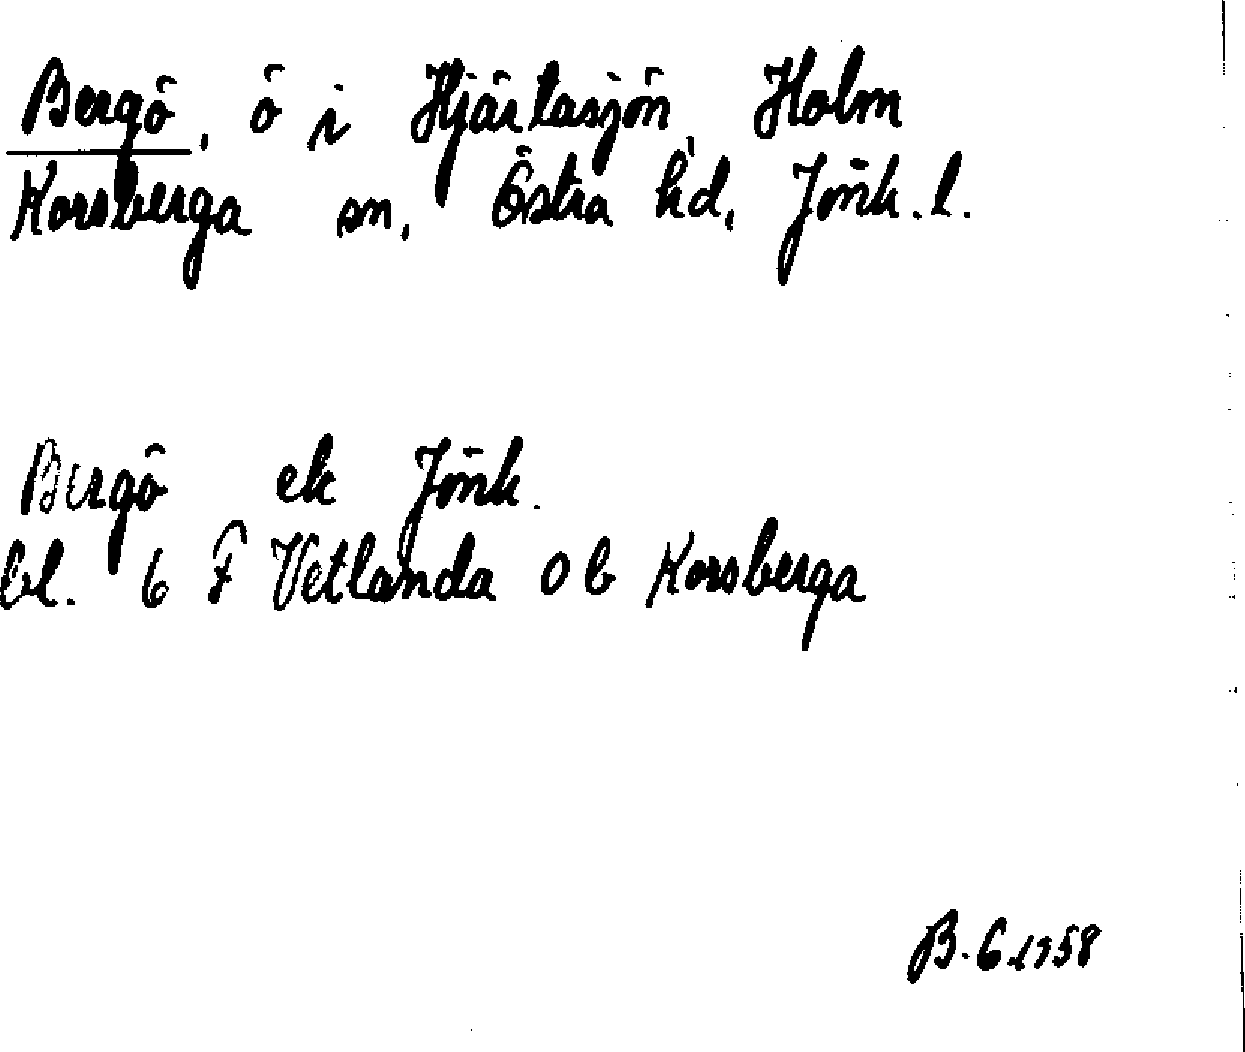 Bergö, ö i Hjärtasjön, Holm
Korsberga sn, Östra hd, Jönk. l.
Bergö ek Jönk.
bl. 6 F Vetlanda 0 b Korsberga
B. G. 1958